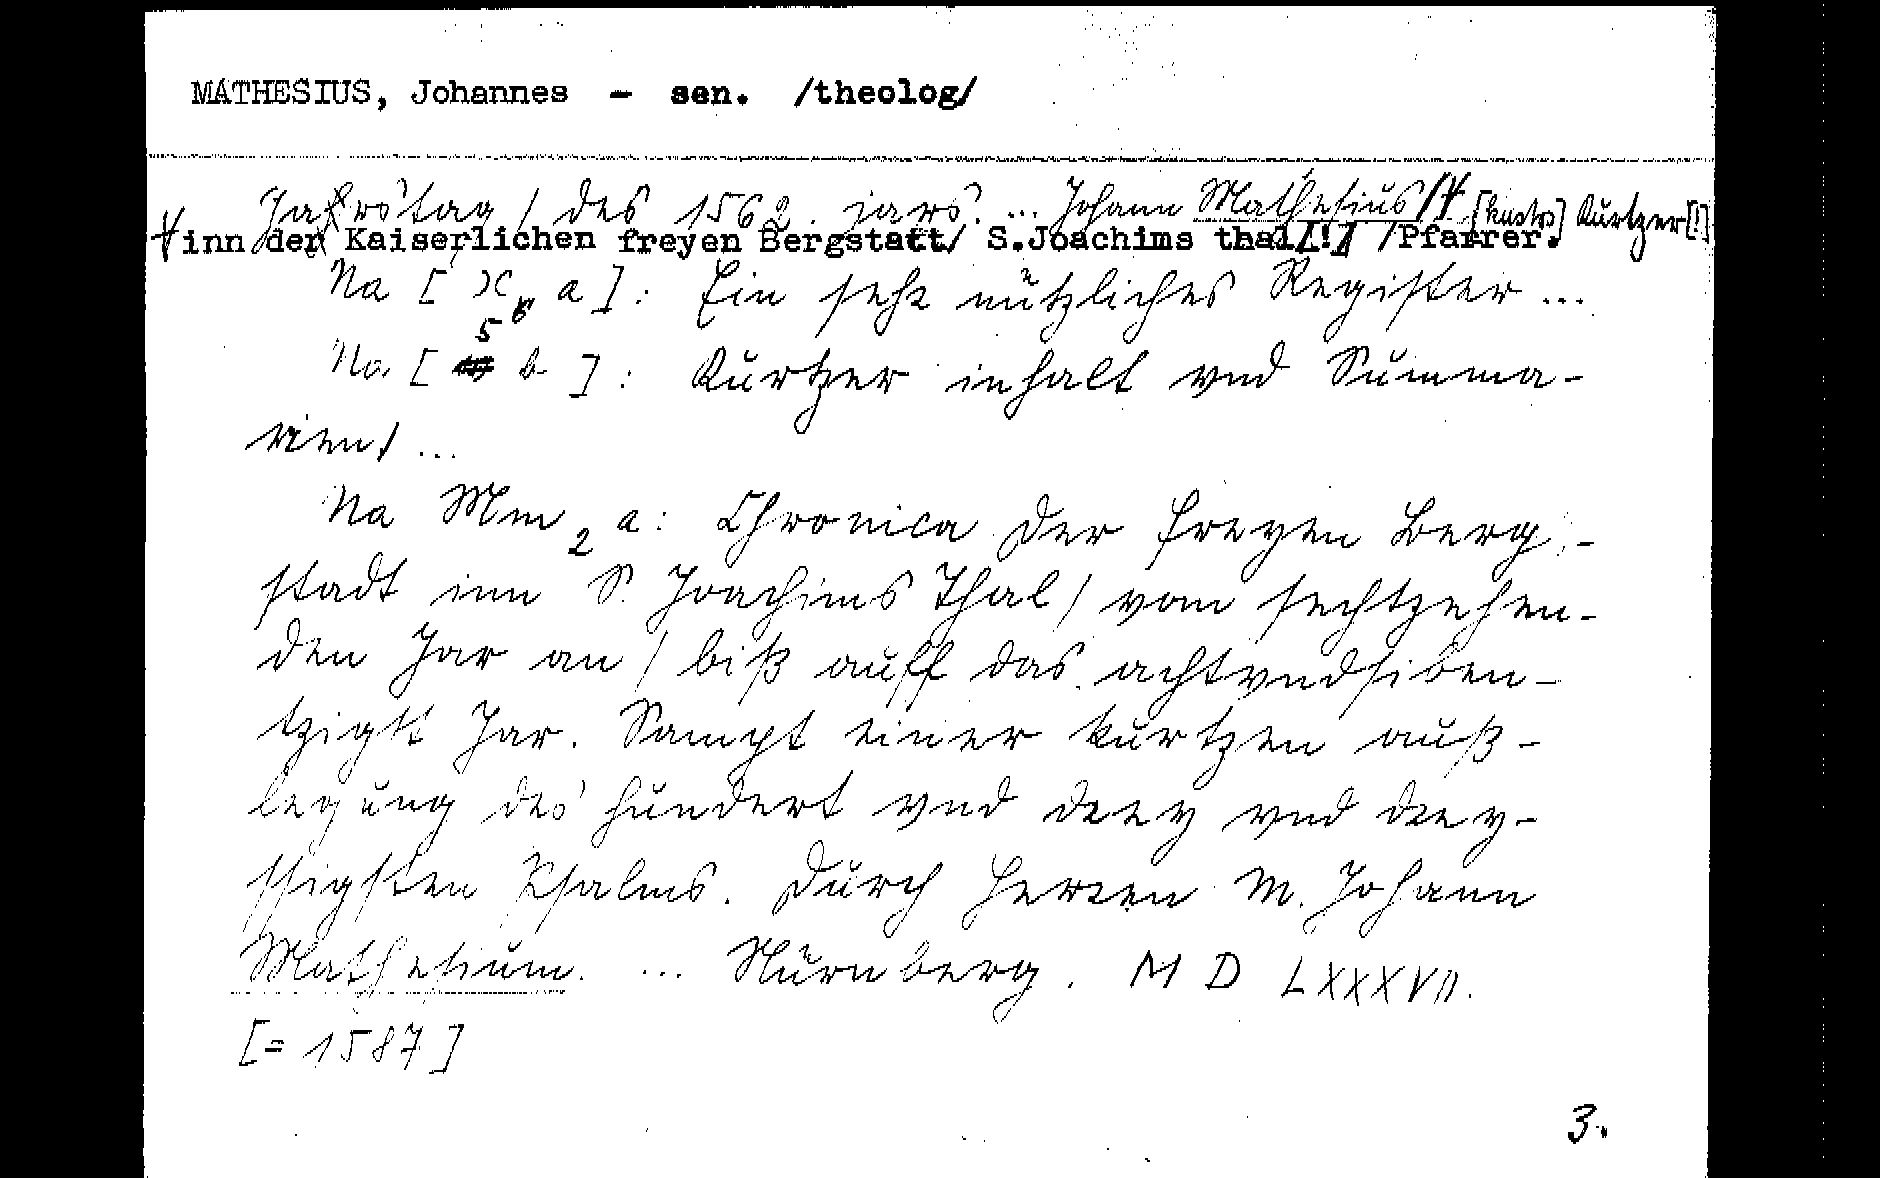 MATHESIUS, Johannes - sen. /theolog/
Jahrstag / des 1562. jars. ... Johann Mathesius/ [kustos] Kurtzer[!]
inn der Kaiserlichen freyen Bergstatt/ S.Joachims thal[!] /Pfarrer.
Na [ 6 a ]: Ein sehr nützliches Register ...
Na [ 5 b ]: Kurtzer inhalt vnd Summa-
rien/ ...
Na Mm 2 a: Chronica der freyen Berg-
stadt inn S. Joachims Thal / vom sechtzehen-
den Jar an / biß auff das achtvndsiben-
tzigst Jar. Sampt einer kurtzen auß-
legung des hundert vnd drey vnd drey-
ssigsten Psalms. Durch Herren M. Johann
Mathesium. ... Nürnberg. M D LXXXVII.
[= 1587]
3.